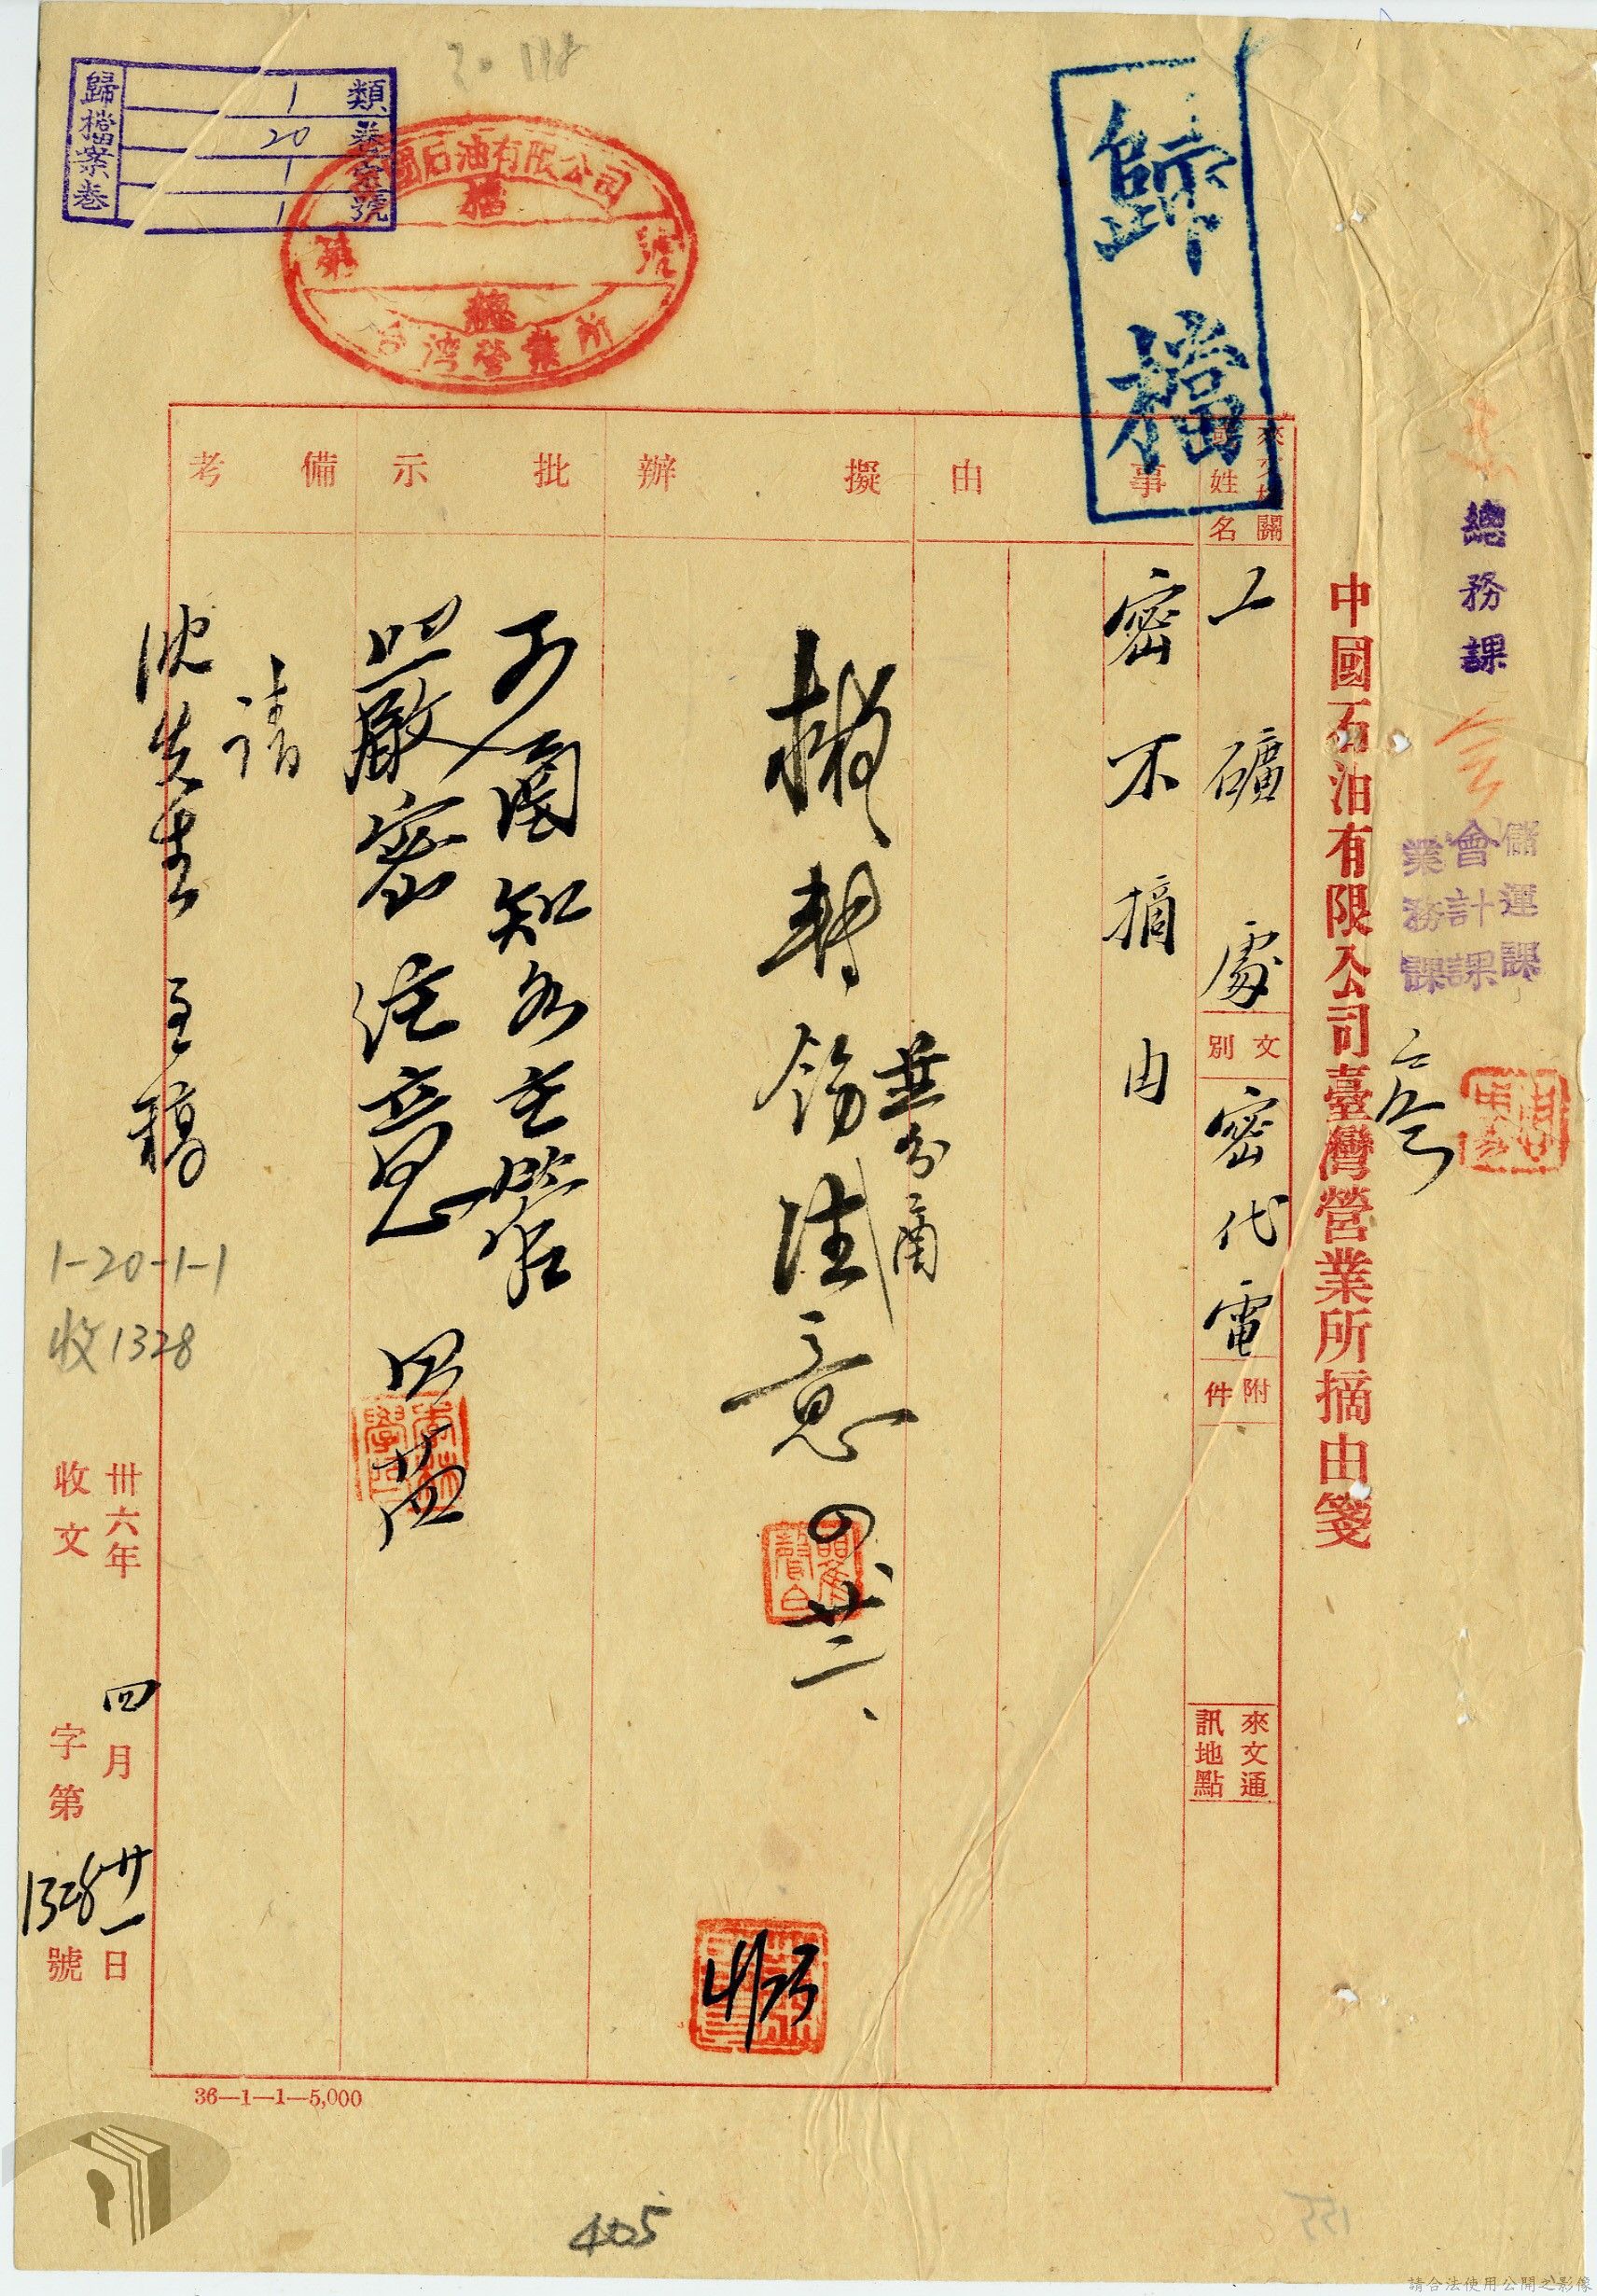 歸檔
總務課
儲運課
會計課
業務課
中國石油有限公司臺灣營業所摘由箋
來文機關
或姓名
工礦處
文別
密代電
附件
來文通
訊地點
事由
密不摘由
擬辦
擬轉飭注意
並分函
四廿二、
批示
可函知各主管
照嚴密注意
四
備考
請
沈先生主稿
卅六年四月廿一日
收文字第1328號
1-20-1-1
收1328
類卷宗號
1
20
1
1
歸檔案卷
中國石油有限公司
檔
第號
總
台灣營業所
36—1—1—5,000
405
請合法使用公開之影像